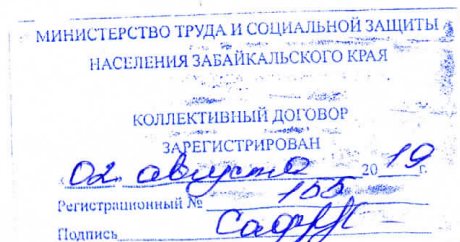 МИНИСТЕРСТВО ТРУДА И СОЦИАЛЬНОЙ ЗАЩИТЫ
НАСЕЛЕНИЯ ЗАБАЙКАЛЬСКОГО КРАЯ
КОЛЛЕКТИВНЫЙ ДОГОВОР
ЗАРЕГИСТРИРОВАН
02 августа 2019 г.
Регистрационный № 155
Подпись